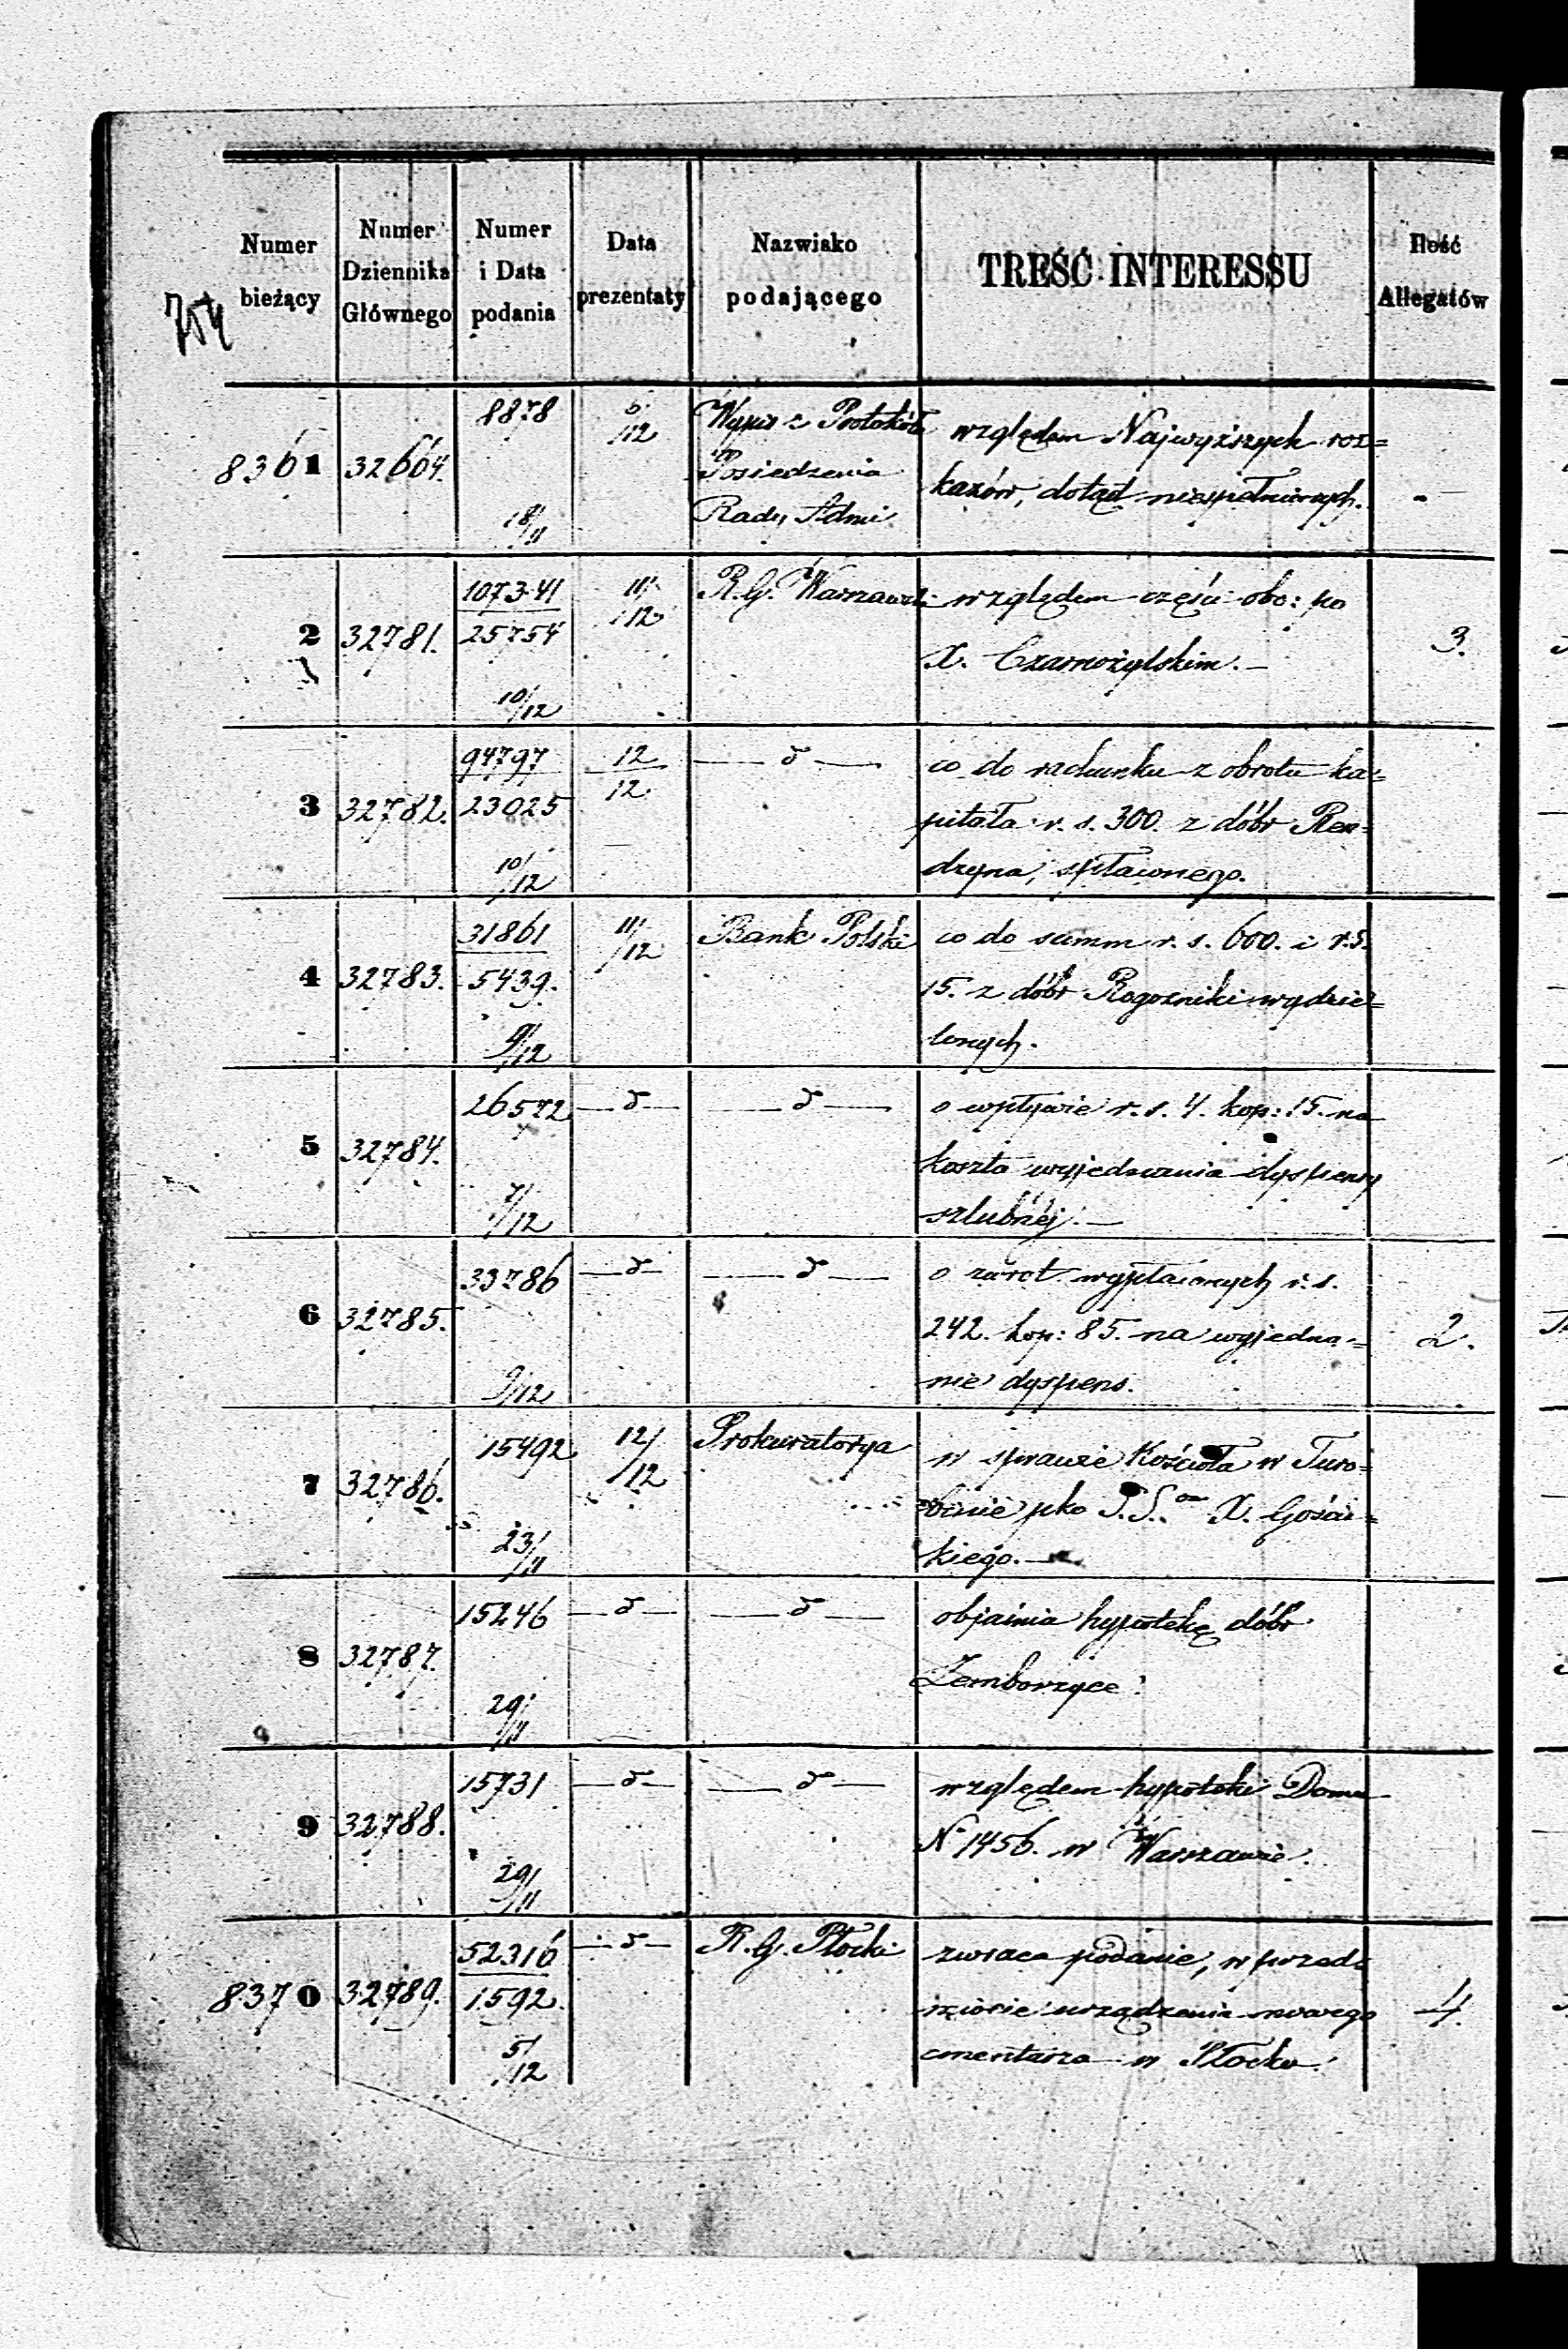 754
Numer bieżący | Numer Dziennika Głównego | Numer i Data podania | Data prezentaty | Nazwisko podającego | TREŚĆ INTERESSU | Ilość Allegatów
8361 | 32664. | 8878 18/11 | 6/12 | Wypis z Protokółu Posiedzenia Rady Admi | względem Najwyższych roz=
kazów, dotąd niespełnionych. | -
2 | 32781. | 1073.41 25754 10/12 | 11/12 | R. G. Warszawski | względem części obo: po
X. Czarnożylskim. —
3.
3 | 32782. | 94797 23025 10/12 | 12/12 | — d — | co do rachunku z obrotu ka=
pitału r. s. 300. z dóbr Ren=
drzyna, spławionego.
4 | 32783. | 31861 5439. 9/12 | 11/12 | Bank Polski | co do summ r. s. 600. i r. s.
15. z dóbr Rogozniki wydzie=
lonych.
5 | 32784. | 26572 7/12 | — d — | — d — | o wpływie r. s. 4. kop: 15. na
koszta wyjednania dyspensy
szlubnéj. —
6 | 32785. | 33786 9/12 | — d — | — d — | o zwrot wypłaconych r. s.
242. kop: 85. na wyjedna=
nie dyspens.
2.
7 | 32786. | 15492 23/11 | 12/12 | Prokuratorya | w sprawie Kościoła w Turo=
binie pko S. S. X. Gościc=
kiego. —
8 | 32787. | 15246 29/11 | — d — | — d — | objaśnia hypotekę dóbr
Zemborzyce.
9 | 32788. | 15731 29/11 | — d — | — d — | względem hypoteki Domu
N 1456. w Warszawie.
8370 | 32789. | 52316 1592. 5/12 | — d — | R. G. Płocki | zwraca podanie, w przed=
miocie urządzenia nowego
cmentarza w Płocku.
4.